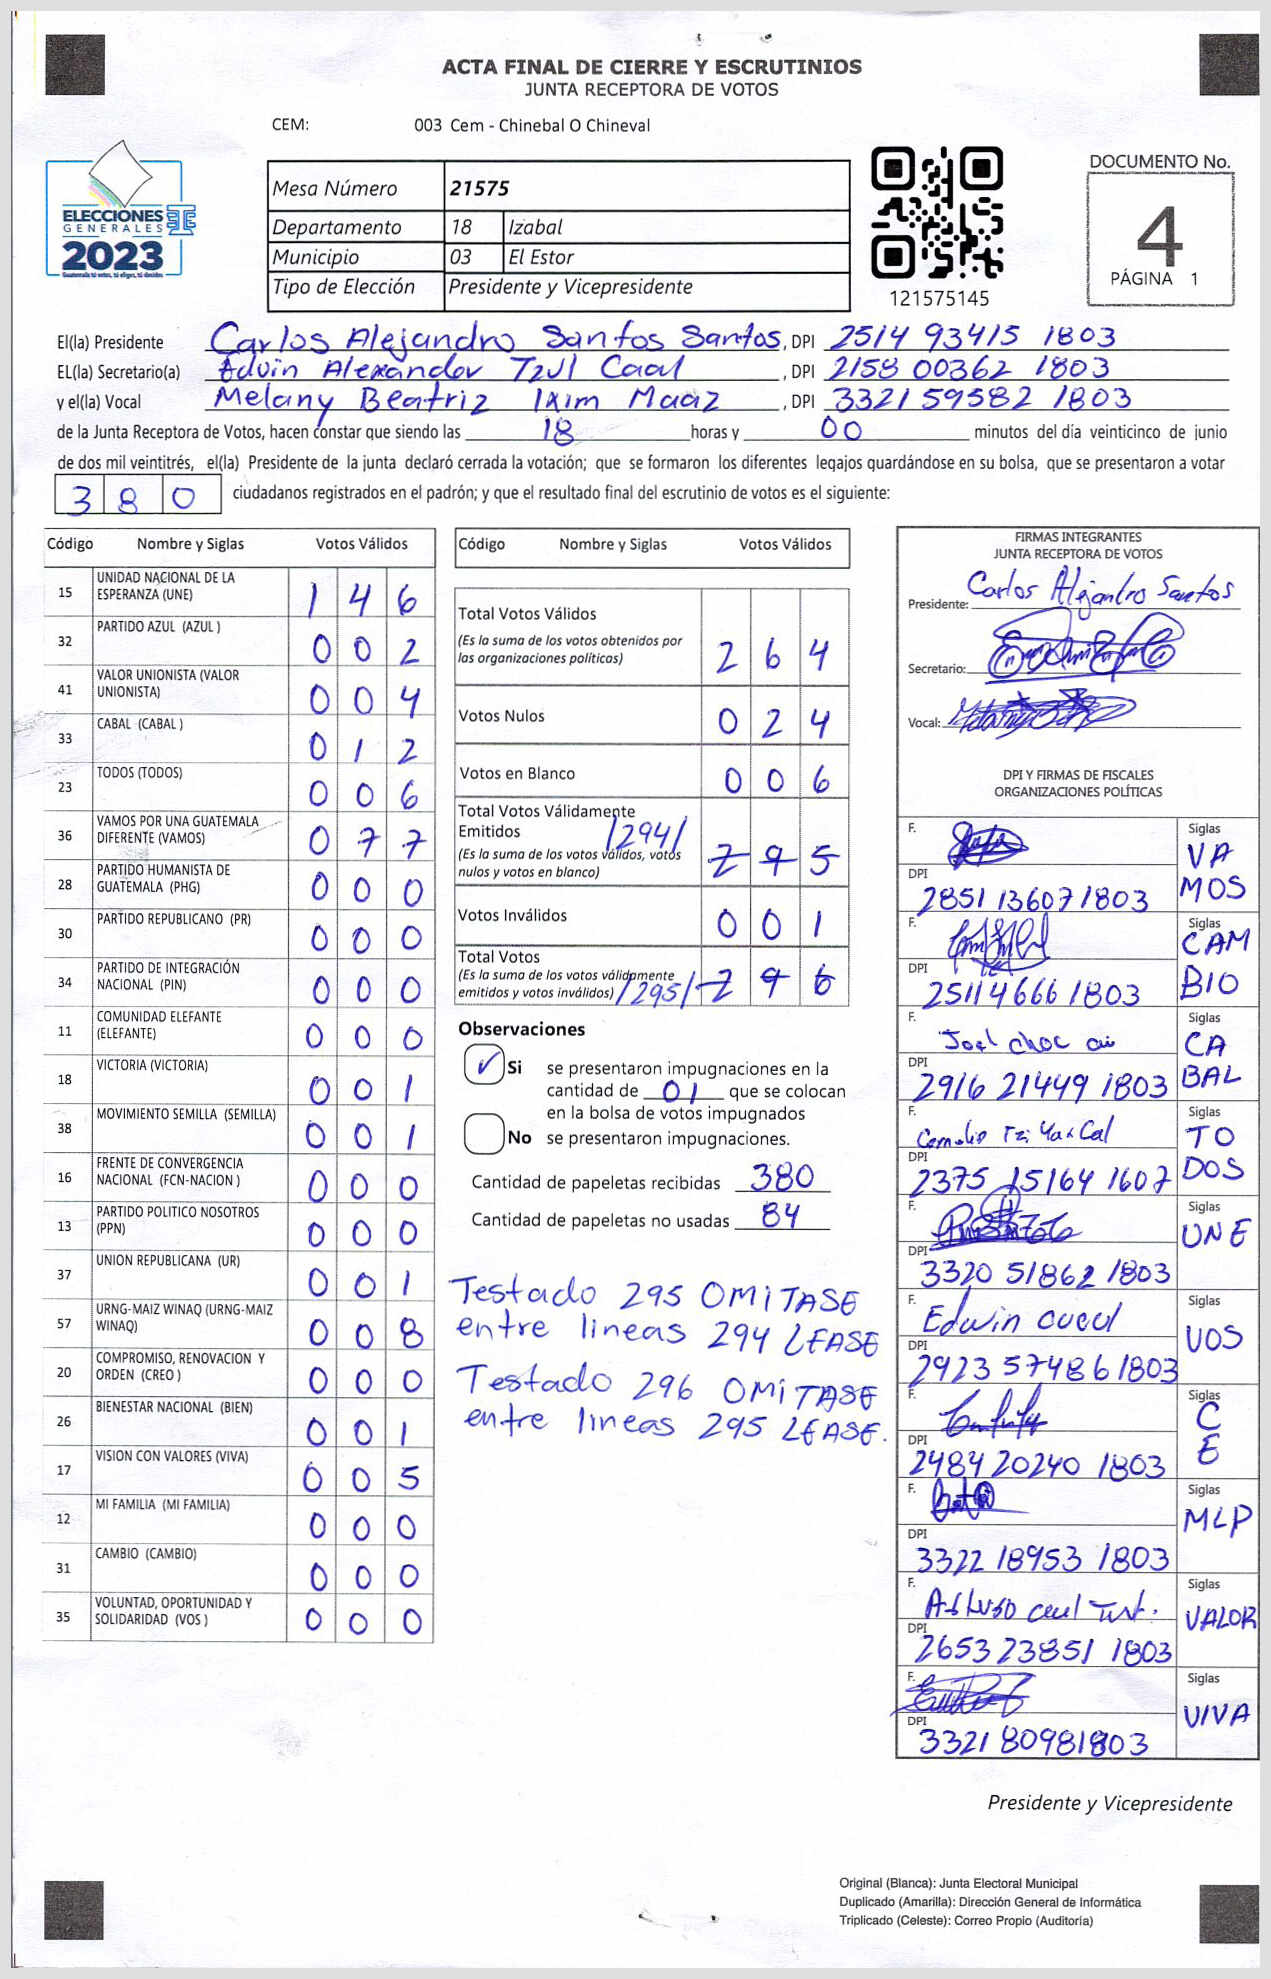 ACTA FINAL DE CIERRE Y ESCRUTINIOS
JUNTA RECEPTORA DE VOTOS
CEM: 003 Cem - Chinebal O Chineval
ELECCIONES
GENERALES
2023
Guatemala tú votas, tú eliges, tú decides
Mesa Número 21575
Departamento 18 Izabal
Municipio 03 El Estor
Tipo de Elección Presidente y Vicepresidente
121575145
DOCUMENTO No.
4
PÁGINA 1
El(la) Presidente Carlos Alejandro Santos Santos, DPI 2514 93415 1803
EL(la) Secretario(a) Edvin Alexander Tzul Caal, DPI 2158 00362 1803
y el(la) Vocal Melany Beatriz Ixim Maaz, DPI 3321 59582 1803
de la Junta Receptora de Votos, hacen constar que siendo las 18 horas y 00 minutos del día veinticinco de junio
de dos mil veintitrés, el(la) Presidente de la junta declaró cerrada la votación; que se formaron los diferentes legajos guardándose en su bolsa, que se presentaron a votar
380 ciudadanos registrados en el padrón; y que el resultado final del escrutinio de votos es el siguiente:
Código Nombre y Siglas Votos Válidos
15 UNIDAD NACIONAL DE LA ESPERANZA (UNE) 1 4 6
32 PARTIDO AZUL (AZUL ) 0 0 2
41 VALOR UNIONISTA (VALOR UNIONISTA) 0 0 4
33 CABAL (CABAL ) 0 1 2
23 TODOS (TODOS) 0 0 6
36 VAMOS POR UNA GUATEMALA DIFERENTE (VAMOS) 0 7 7
28 PARTIDO HUMANISTA DE GUATEMALA (PHG) 0 0 0
30 PARTIDO REPUBLICANO (PR) 0 0 0
34 PARTIDO DE INTEGRACIÓN NACIONAL (PIN) 0 0 0
11 COMUNIDAD ELEFANTE (ELEFANTE) 0 0 0
18 VICTORIA (VICTORIA) 0 0 1
38 MOVIMIENTO SEMILLA (SEMILLA) 0 0 1
16 FRENTE DE CONVERGENCIA NACIONAL (FCN-NACION ) 0 0 0
13 PARTIDO POLITICO NOSOTROS (PPN) 0 0 0
37 UNION REPUBLICANA (UR) 0 0 1
57 URNG-MAIZ WINAQ (URNG-MAIZ WINAQ) 0 0 8
20 COMPROMISO, RENOVACION Y ORDEN (CREO ) 0 0 0
26 BIENESTAR NACIONAL (BIEN) 0 0 1
17 VISION CON VALORES (VIVA) 0 0 5
12 MI FAMILIA (MI FAMILIA) 0 0 0
31 CAMBIO (CAMBIO) 0 0 0
35 VOLUNTAD, OPORTUNIDAD Y SOLIDARIDAD (VOS ) 0 0 0
Código Nombre y Siglas Votos Válidos
Total Votos Válidos
(Es la suma de los votos obtenidos por
las organizaciones políticas) 2 6 4
Votos Nulos 0 2 4
Votos en Blanco 0 0 6
Total Votos Válidamente
Emitidos /294/
(Es la suma de los votos válidos, votos
nulos y votos en blanco) 2 9 5
Votos Inválidos 0 0 1
Total Votos
(Es la suma de los votos válidamente
emitidos y votos inválidos) /295/ 2 9 6
Observaciones
✓ Si se presentaron impugnaciones en la
cantidad de 01 que se colocan
en la bolsa de votos impugnados
No se presentaron impugnaciones.
Cantidad de papeletas recibidas 380
Cantidad de papeletas no usadas 84
Testado 295 OMITASE
entre lineas 294 LEASE
Testado 296 OMITASE
entre lineas 295 LEASE.
FIRMAS INTEGRANTES
JUNTA RECEPTORA DE VOTOS
Presidente: Carlos Alejandro Santos
Secretario:
Vocal:
DPI Y FIRMAS DE FISCALES
ORGANIZACIONES POLÍTICAS
F. Siglas VAMOS
DPI 2851 13607 1803
F. Siglas CAMBIO
DPI 2511 4666 1803
F. Joel choc Siglas CABAL
DPI 2916 21449 1803
F. Siglas TODOS
DPI 2375 15164 1607
F. Siglas UNE
DPI 3320 51862 1803
F. Edwin cucul Siglas VOS
DPI 2923 57486 1803
F. Siglas CE
DPI 2484 20240 1803
F. Siglas MLP
DPI 3322 18953 1803
F. Siglas VALOR
DPI 2653 23851 1803
F. Siglas VIVA
DPI 3321 80981803
Presidente y Vicepresidente
Original (Blanca): Junta Electoral Municipal
Duplicado (Amarilla): Dirección General de Informática
Triplicado (Celeste): Correo Propio (Auditoría)